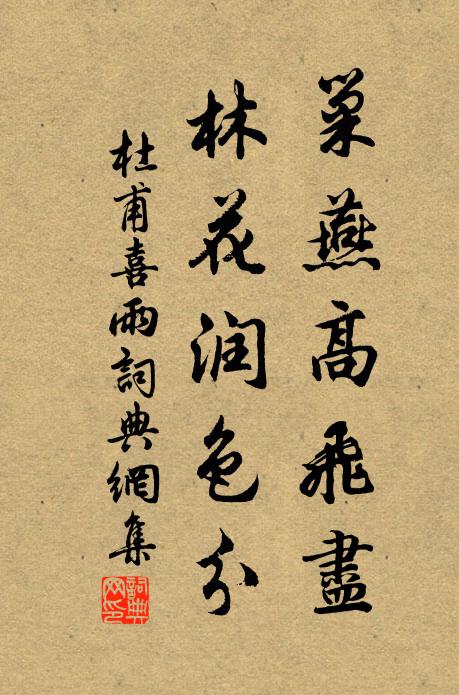 巢燕高飛盡
林花润色分
杜甫喜雨詞典網集
詞典网印